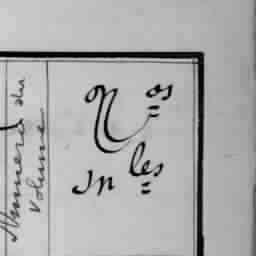 Numéro du
volume
N os
In les